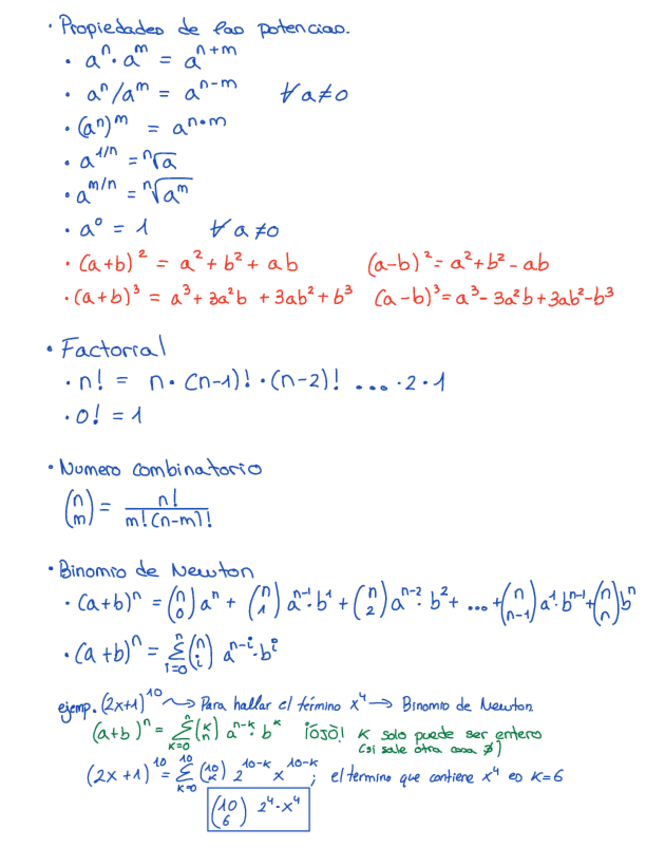 · Propiedades de las potencias.
· aⁿ · aᵐ = aⁿ⁺ᵐ
· aⁿ/aᵐ = aⁿ⁻ᵐ ∀ a≠0
· (aⁿ)ᵐ = aⁿ·ᵐ
· a^(1/n) = ⁿ√a
· a^(m/n) = ⁿ√(aᵐ)
· a⁰ = 1 ∀ a≠0
· (a+b)² = a² + b² + ab (a-b)² = a² + b² - ab
· (a+b)³ = a³ + 3a²b + 3ab² + b³ (a-b)³ = a³ - 3a²b + 3ab² - b³
· Factorial
· n! = n · (n-1)! · (n-2)! ... · 2 · 1
· 0! = 1
· Numero combinatorio
(n m) = n! / m!(n-m)!
· Binomio de Newton
· (a+b)ⁿ = (n 0) aⁿ + (n 1) aⁿ⁻¹ · b¹ + (n 2) aⁿ⁻² · b² + ... + (n n-1) a¹ · bⁿ⁻¹ + (n n) bⁿ
· (a+b)ⁿ = Σ_(i=0)^n (n i) aⁿ⁻ⁱ · bⁱ
ejemp. (2x+1)¹⁰ ⤳ Para hallar el término x⁴ → Binomio de Newton
(a+b)ⁿ = Σ_(k=0)^n (k n) aⁿ⁻ᵏ · bᵏ ¡OJO! K solo puede ser entero
(si sale otra cosa ∄)
(2x+1)¹⁰ = Σ_(k=0)^10 (10 k) 2¹⁰⁻ᵏ x¹⁰⁻ᵏ ; el termino que contiene x⁴ es K=6
(10 6) 2⁴ · x⁴